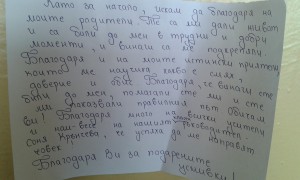 Като за начало, искам да благодаря на
моите родители. Те са ми дали живот
и са били до мен в трудни и добри
моменти, и винаги са ме подкрепяли.
Благодаря и на моите истински приятели,
които ме научиха какво е смях,
доверие и обич. Благодаря, че винаги сте
били до мен, помагали сте ми и сте
ми показвали правилния път. Обичам
ви! Благодаря много на всички учители
и най-вече на нашият ръководител
Соня Кръстева, че успяха да ме направят
човек.
Благодаря Ви за подарените
усмивки!